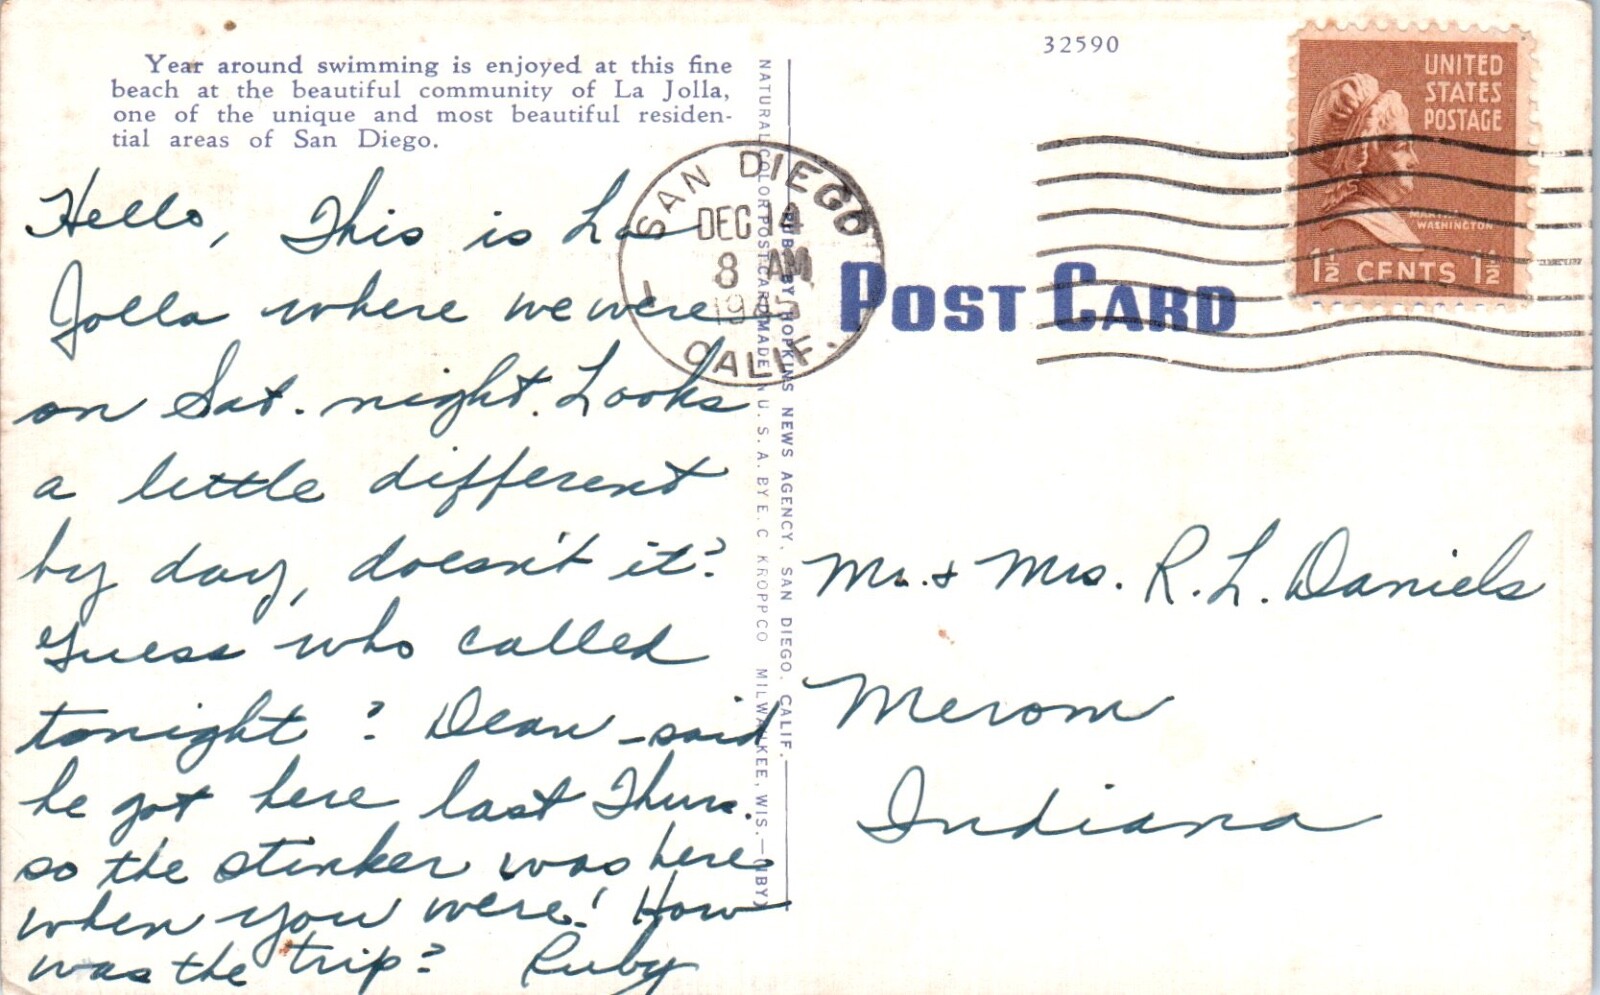 Year around swimming is enjoyed at this fine
beach at the beautiful community of La Jolla,
one of the unique and most beautiful residen-
tial areas of San Diego.
Hello, This is La
Jolla where we were
on Sat. night. Looks
a little different
by day, doesn't it?
Guess who called
tonight? Dean - said
he got here last Thurs.
so the stinker was here
when you were! How
was the trip? Ruby
NATURAL COLOR POST CARD MADE IN U. S. A. BY E. C. KROPP CO. MILWAUKEE, WIS.
PUB. BY HOPKINS NEWS AGENCY, SAN DIEGO, CALIF.
SAN DIEGO
DEC 14
8 AM
CALIF.
32590
UNITED
STATES
POSTAGE
MARTHA
WASHINGTON
1½ CENTS 1½
POST CARD
Mr. & Mrs. R. L. Daniels
Merom
Indiana